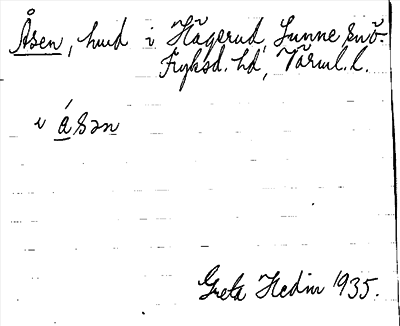 Åsen, hmd i Hågerud, Sunne snö.
Fryksd. hd, Värml. l.
i ásən
Greta Hedin 1935.